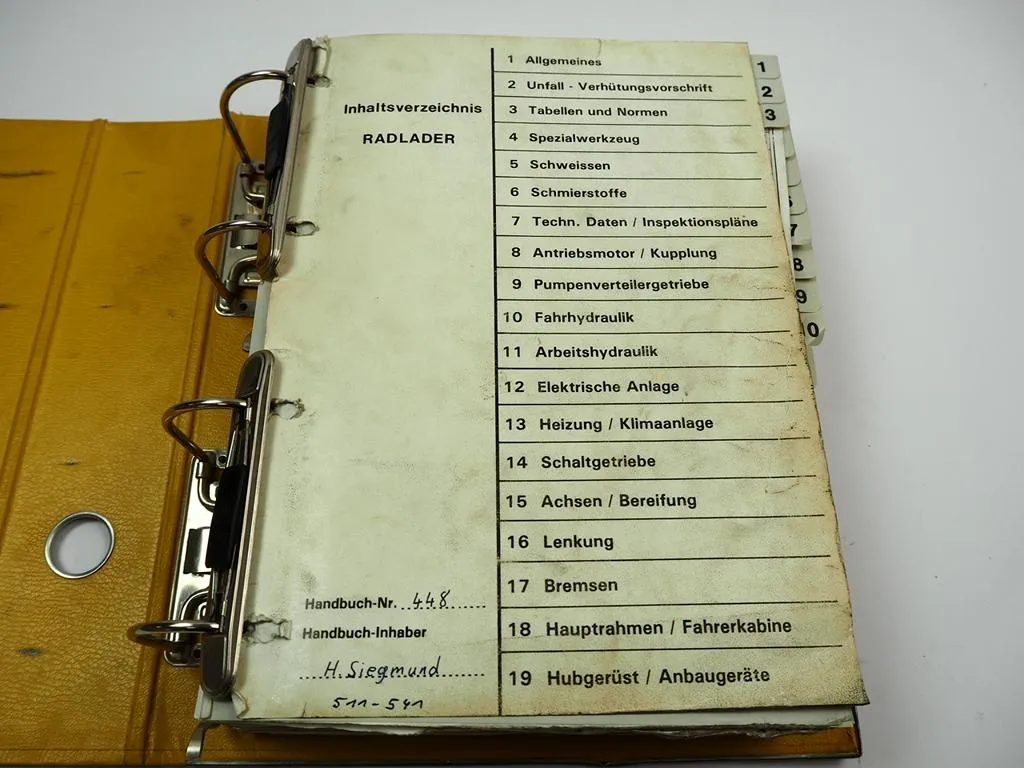 Inhaltsverzeichnis
RADLADER
1 Allgemeines
2 Unfall - Verhütungsvorschrift
3 Tabellen und Normen
4 Spezialwerkzeug
5 Schweissen
6 Schmierstoffe
7 Techn. Daten / Inspektionspläne
8 Antriebsmotor / Kupplung
9 Pumpenverteilergetriebe
10 Fahrhydraulik
11 Arbeitshydraulik
12 Elektrische Anlage
13 Heizung / Klimaanlage
14 Schaltgetriebe
15 Achsen / Bereifung
16 Lenkung
17 Bremsen
18 Hauptrahmen / Fahrerkabine
19 Hubgerüst / Anbaugeräte
Handbuch-Nr. 448
Handbuch-Inhaber
H. Siegmund
511-541
1
2
3
7
8
9